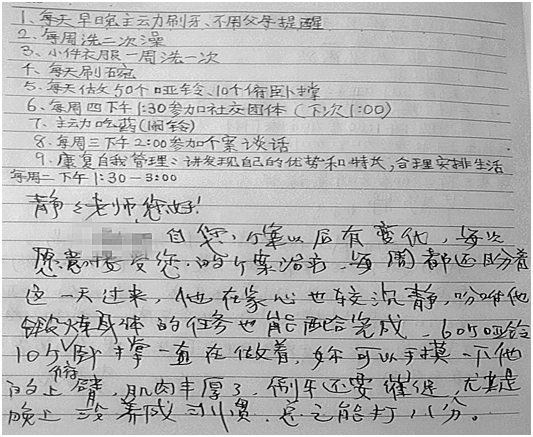 1、每天早晚主动刷牙、不用父母提醒
2、每周洗二次澡
3、小件衣服一周洗一次
4、每天刷五碗
5、每天做50个哑铃、10个俯卧撑
6、每周四下午1:30参加社交团体(下次1:00)
7、主动吃药(闹铃)
8、每周三下午2:00参加个案谈话
9、康复自我管理:讲发现自己的优势和特长,合理安排生活
每周二下午1:30-3:00
静老师您好!
自您个案以后有变化,每次
愿意接受您的个案治疗,每周都还盼着
这一天过来,他在家心也较沉静,吩咐他
锻炼身体的任务也能配合完成。60个哑铃
10个俯卧撑一直在做着,你可以手摸一下他
的上臂,肌肉丰厚了,刷牙还要催促,尤其是
晚上没养成习惯,总之能打八分。